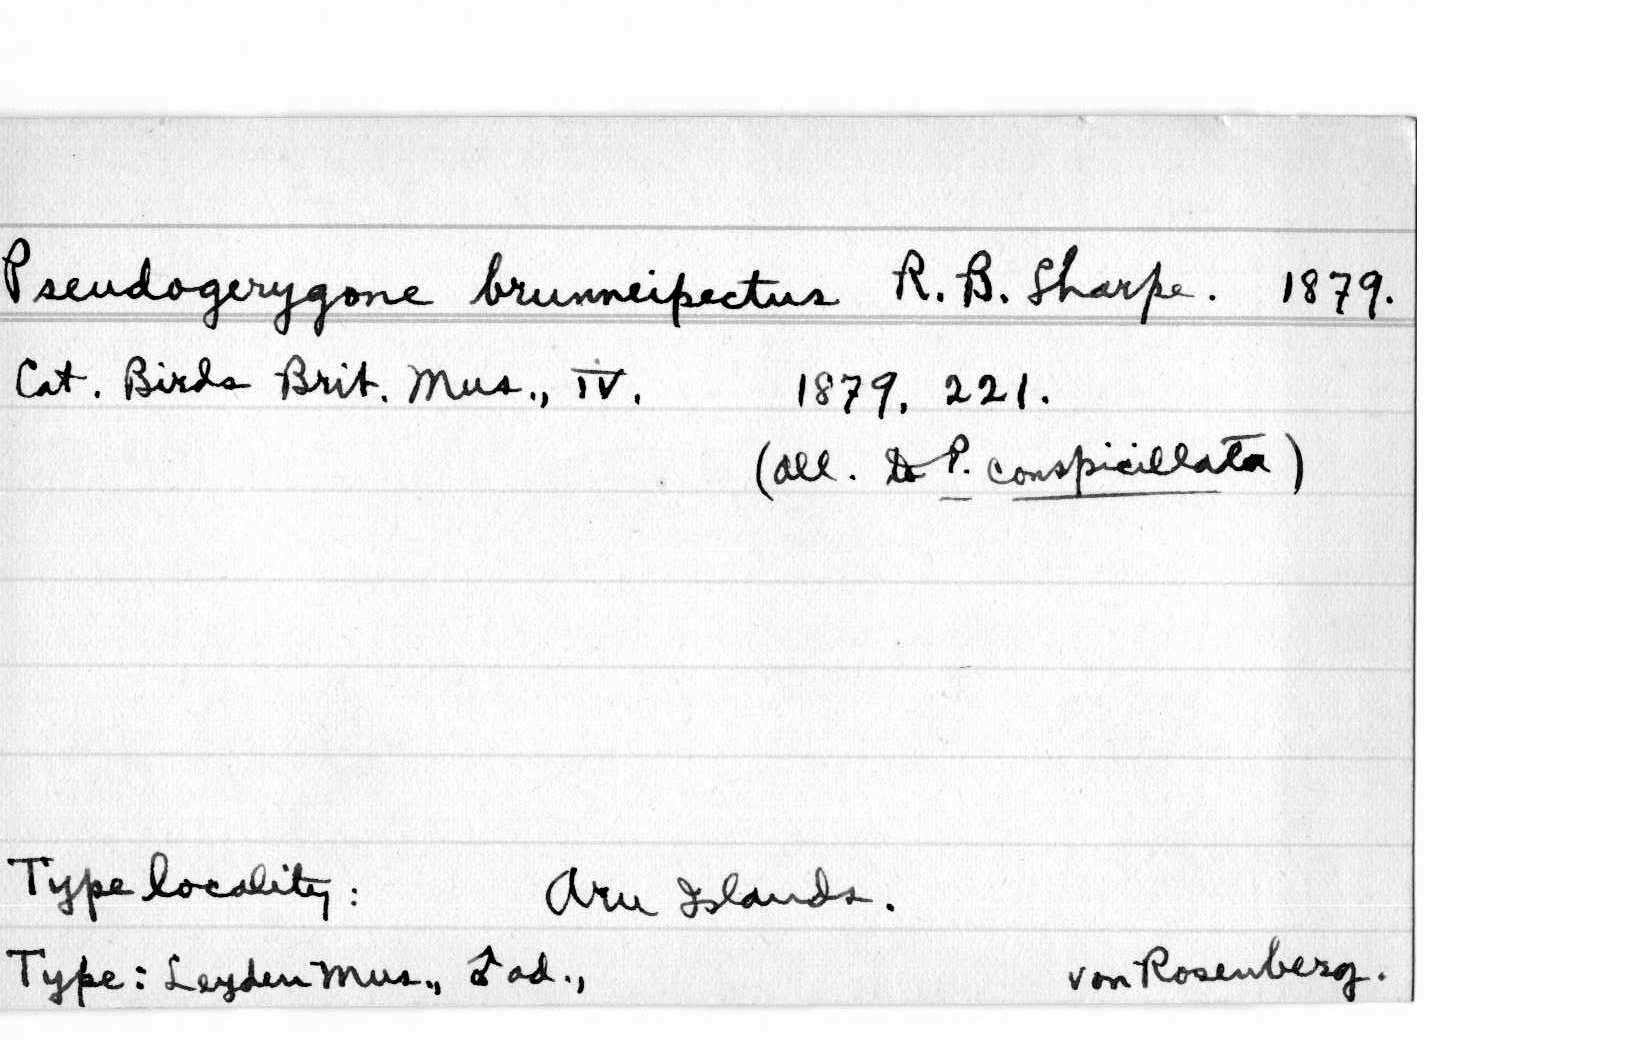 Pseudogerygone brunneipectus R. B. Sharpe. 1879.
Cat. Birds Brit. Mus., IV. 1879, 221.
(all. to P. conspicillata)
Type locality: Aru Islands.
Type: Leyden Mus., ♂ ad., von Rosenberg.